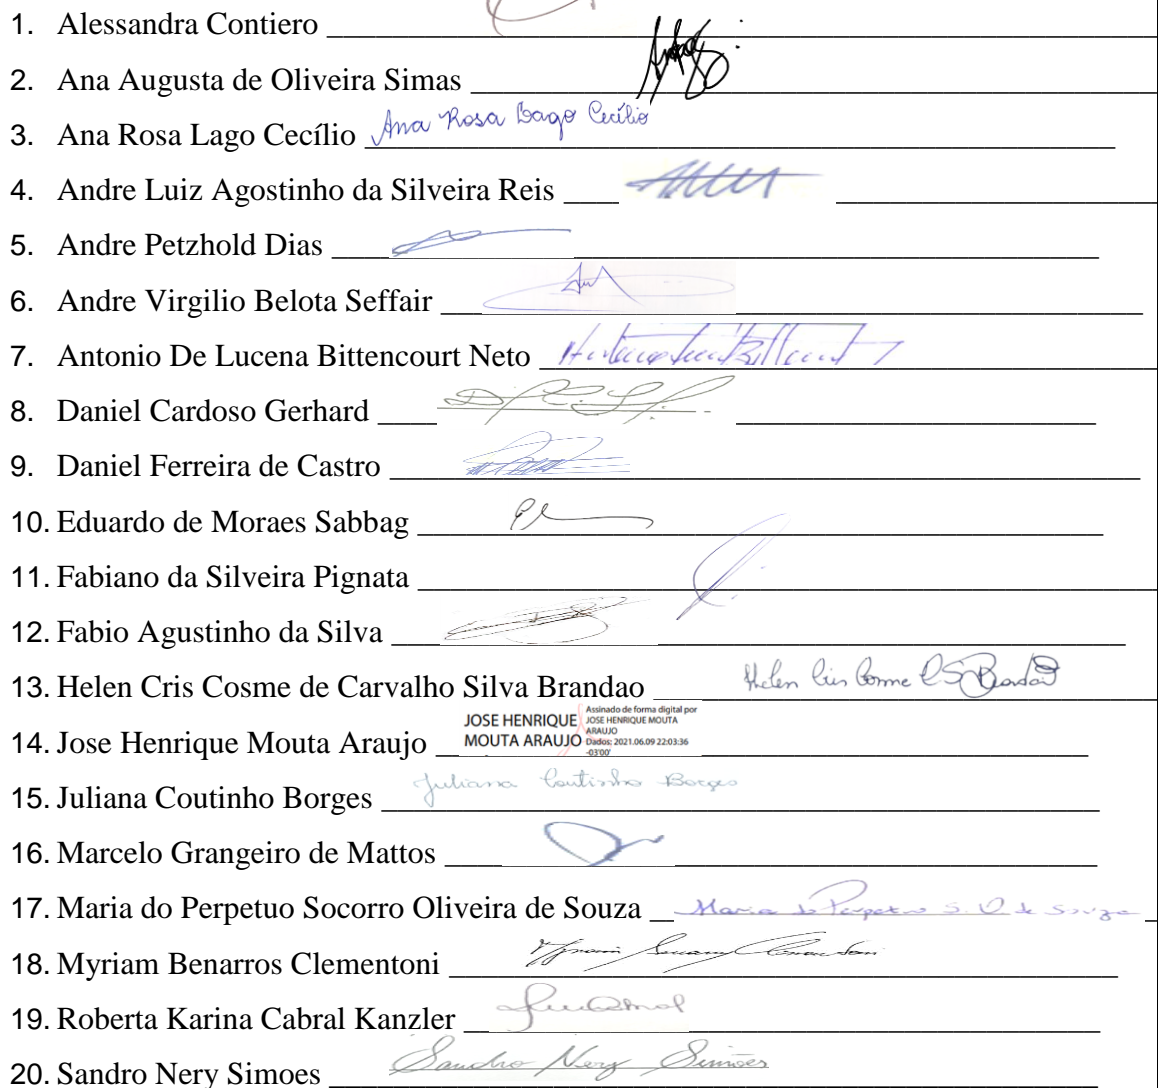 1. Alessandra Contiero
2. Ana Augusta de Oliveira Simas
3. Ana Rosa Lago Cecílio Ana Rosa Lago Cecílio
4. Andre Luiz Agostinho da Silveira Reis
5. Andre Petzhold Dias
6. Andre Virgilio Belota Seffair
7. Antonio De Lucena Bittencourt Neto
8. Daniel Cardoso Gerhard
9. Daniel Ferreira de Castro
10. Eduardo de Moraes Sabbag
11. Fabiano da Silveira Pignata
12. Fabio Agustinho da Silva
13. Helen Cris Cosme de Carvalho Silva Brandao Helen Cris Cosme C S Brandão
14. Jose Henrique Mouta Araujo
JOSE HENRIQUE
MOUTA ARAUJO
Assinado de forma digital por
JOSE HENRIQUE MOUTA
ARAUJO
Dados: 2021.06.09 22:03:36
-03'00'
15. Juliana Coutinho Borges Juliana Coutinho Borges
16. Marcelo Grangeiro de Mattos
17. Maria do Perpetuo Socorro Oliveira de Souza Maria do Perpetuo S. O de Souza
18. Myriam Benarros Clementoni
19. Roberta Karina Cabral Kanzler
20. Sandro Nery Simoes Sandro Nery Simões